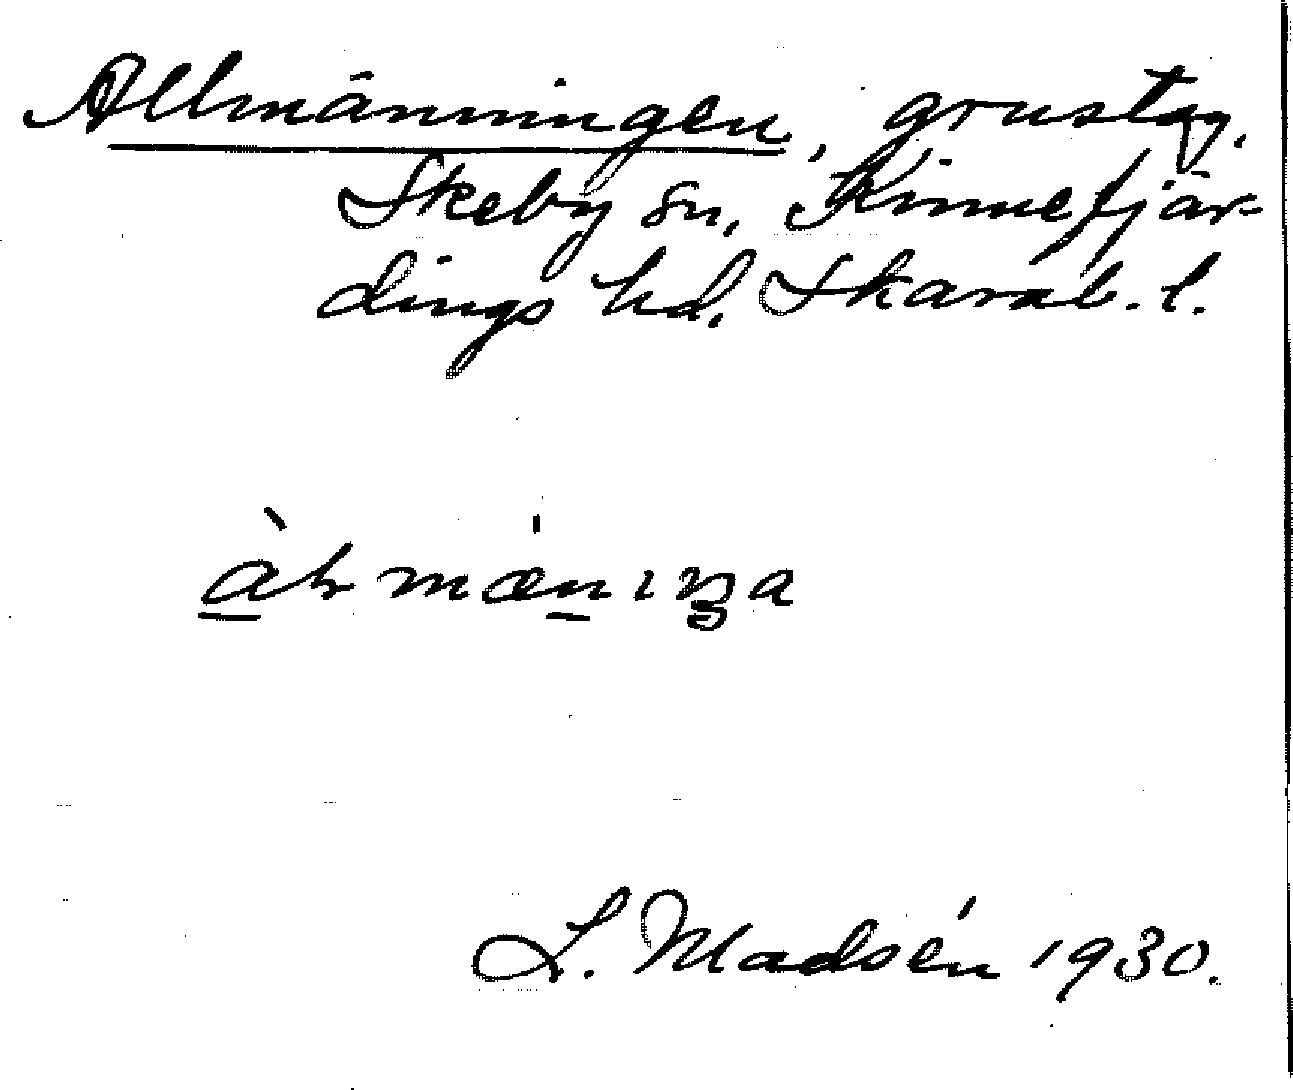 Allmänningen, grustag,
Skeby sn, Kinnefjär-
dings hd, Skarab. l.
L. Madsén 1930.